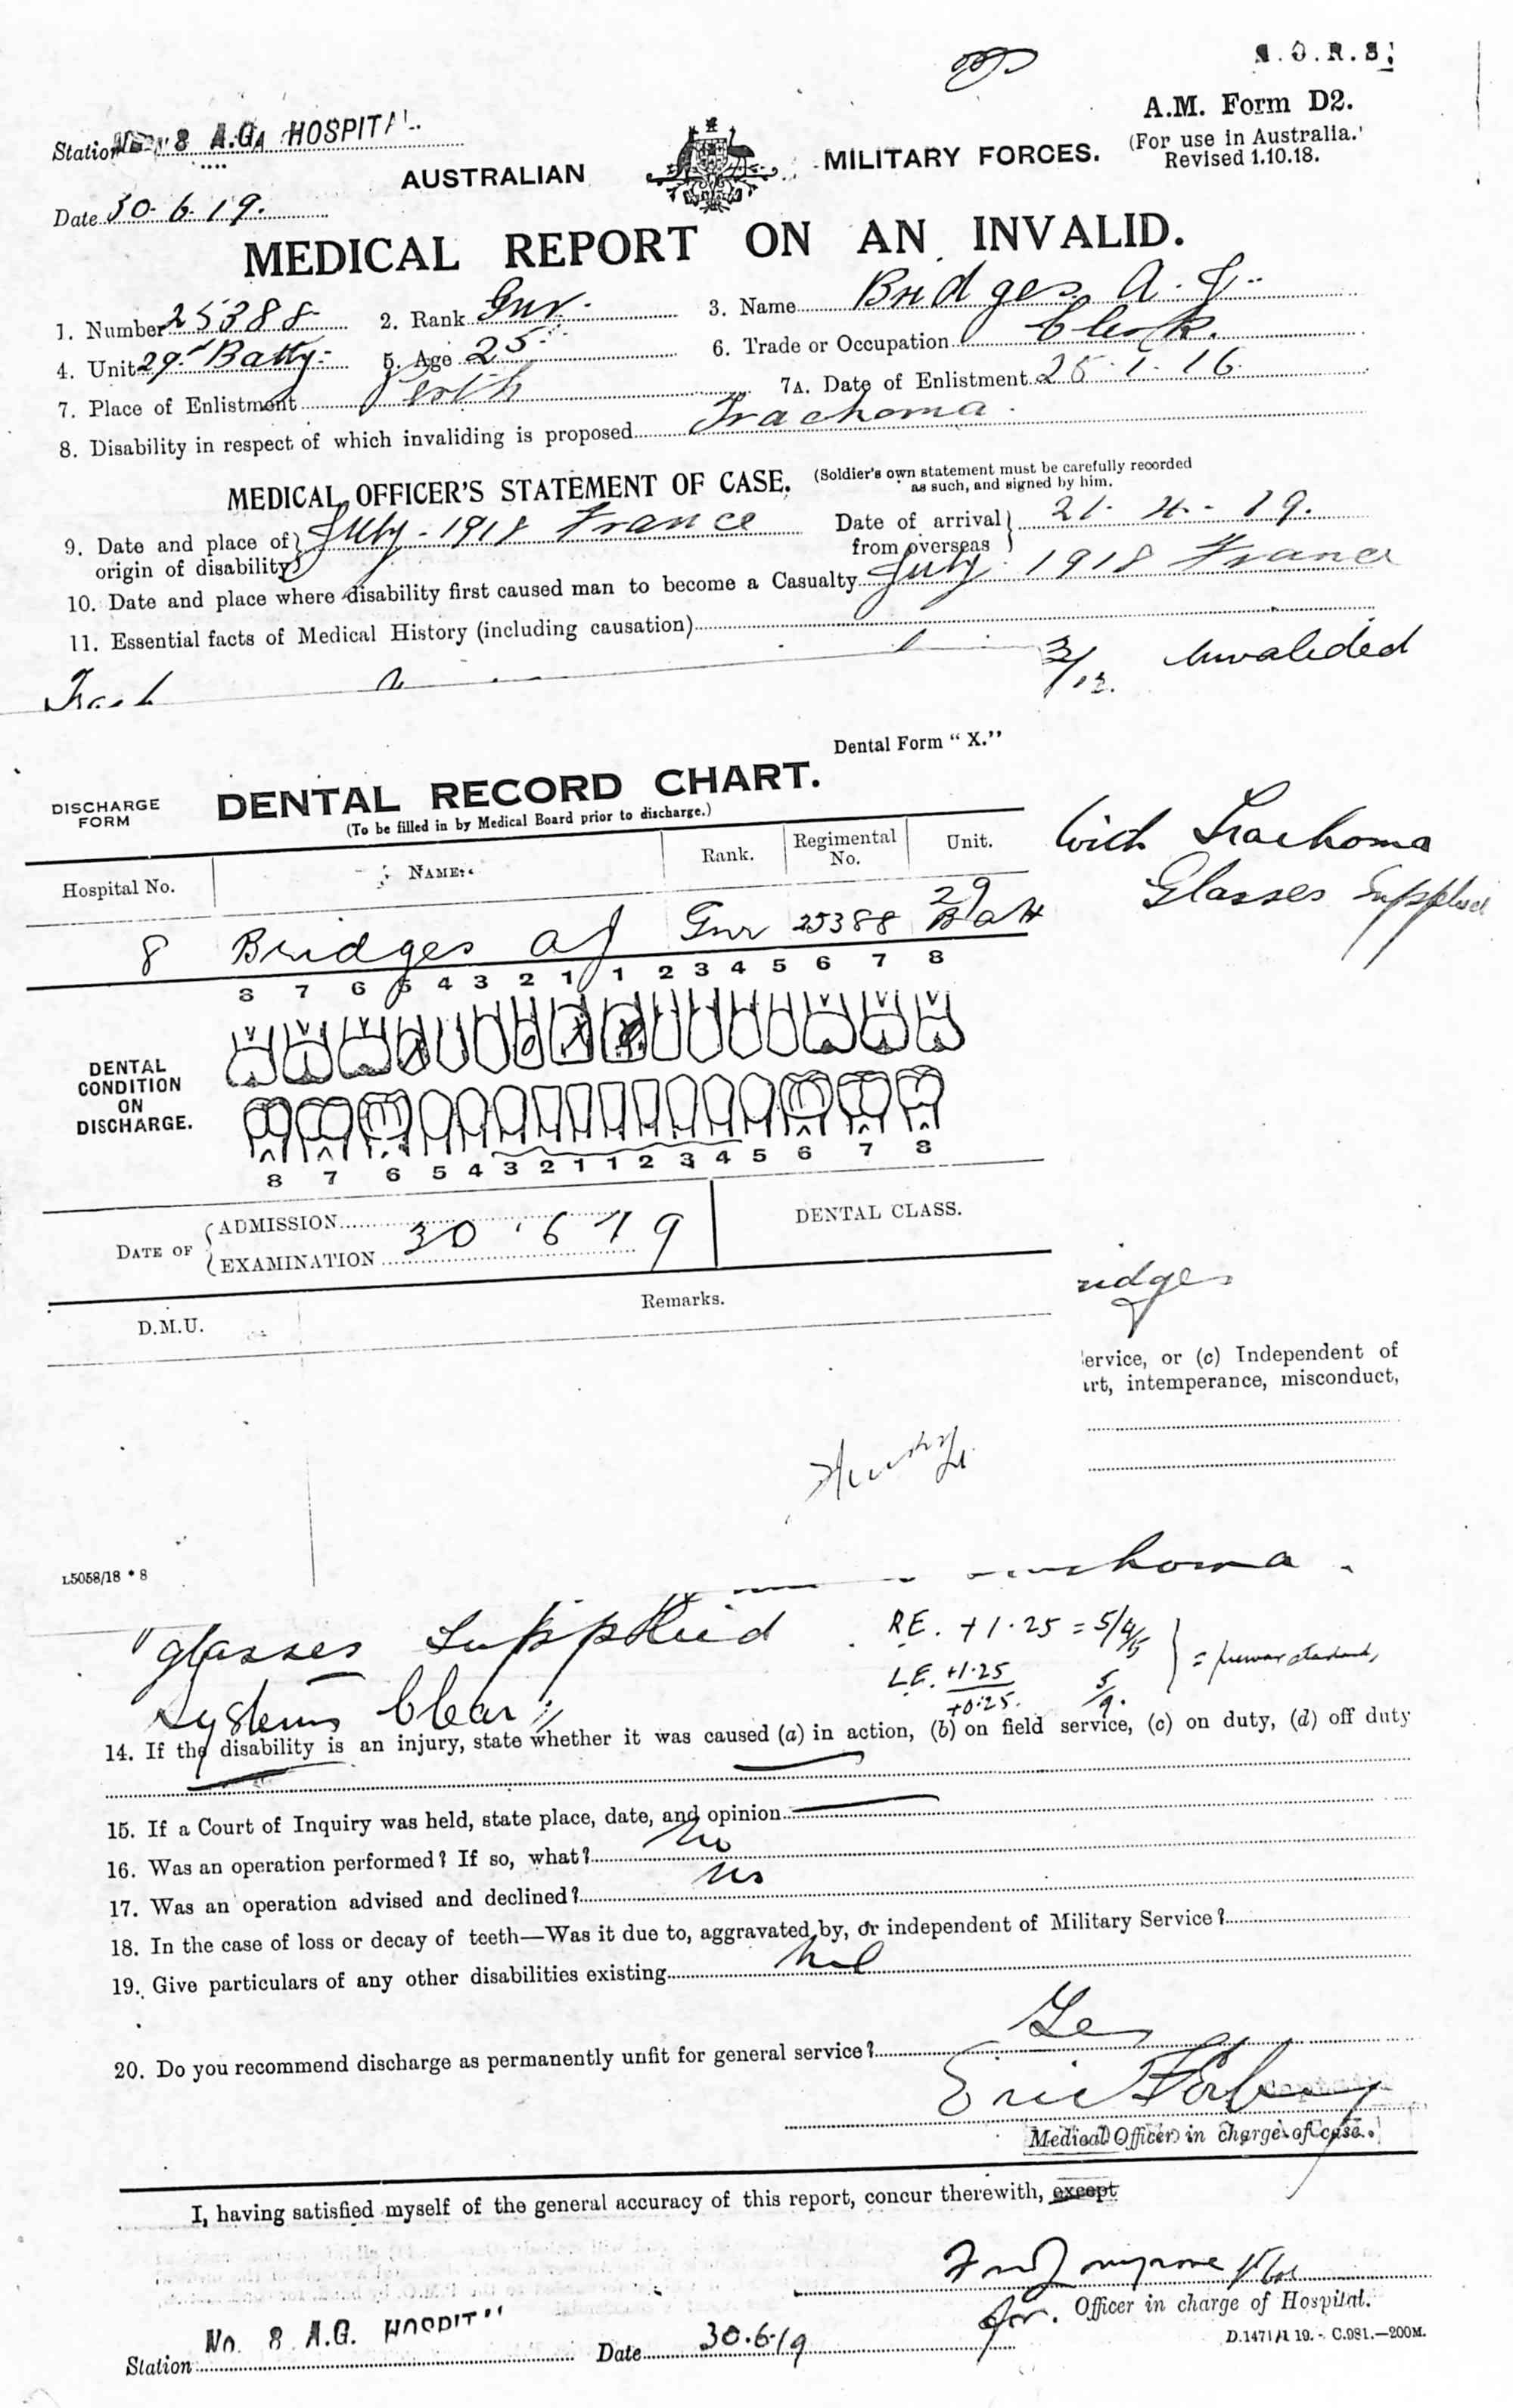 A.M. Form D2.
(For use in Australia.
Revised 1.10.18.
Station No 8 A.G. HOSPITAL
AUSTRALIAN MILITARY FORCES.
Date 30.6.19.
MEDICAL REPORT ON AN INVALID.
1. Number 25388 2. Rank Gnr. 3. Name Bridges A. J.
4. Unit 29th Batty. 5. Age 25 6. Trade or Occupation Clerk.
7. Place of Enlistment Perth 7A. Date of Enlistment 25.1.16
8. Disability in respect of which invaliding is proposed Trachoma.
MEDICAL OFFICER'S STATEMENT OF CASE. (Soldier's own statement must be carefully recorded
as such, and signed by him.
9. Date and place of origin of disability July - 1918 France Date of arrival from overseas 21.4.19.
10. Date and place where disability first caused man to become a Casualty July 1918 France
11. Essential facts of Medical History (including causation)
3/12. Invalided
Dental Form "X."
DISCHARGE FORM DENTAL RECORD CHART.
(To be filled in by Medical Board prior to discharge.)
With Trachoma
Glasses Supplied
Hospital No. NAME. Rank. Regimental No. Unit.
8 Bridges A J Gnr 25388 29 Batt
8 7 6 5 4 3 2 1 1 2 3 4 5 6 7 8
DENTAL
CONDITION
ON
DISCHARGE.
8 7 6 5 4 3 2 1 1 2 3 4 5 6 7 8
DATE OF ADMISSION
EXAMINATION 30.6.19
DENTAL CLASS.
D.M.U. Remarks.
ridges
ervice, or (c) Independent of
rt, intemperance, misconduct,
L5058/18 * 8
choma.
"glasses supplied
RE. +1.25 = 5/4.5
LE. +1.25
+0.25. 5/9. = prewar standard,
Systems Clear
14. If the disability is an injury, state whether it was caused (a) in action, (b) on field service, (c) on duty, (d) off duty
15. If a Court of Inquiry was held, state place, date, and opinion
16. Was an operation performed? If so, what? No
17. Was an operation advised and declined? No
18. In the case of loss or decay of teeth—Was it due to, aggravated by, or independent of Military Service?
19. Give particulars of any other disabilities existing Nil
20. Do you recommend discharge as permanently unfit for general service? Yes
Eric
Medical Officer in charge of case.
I, having satisfied myself of the general accuracy of this report, concur therewith, except
for. Officer in charge of Hospital.
Station No. 8 A.G. HOSPIT Date 30.6.19
D.1471/1.19.-C.981.—200M.